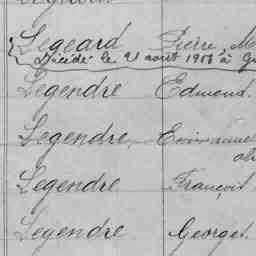 Legeard Pierre, M
Décédé le 21 août 1958 à
Legendre Edmond.
Legendre Emmanuel
Legendre François
Legendre Georges.